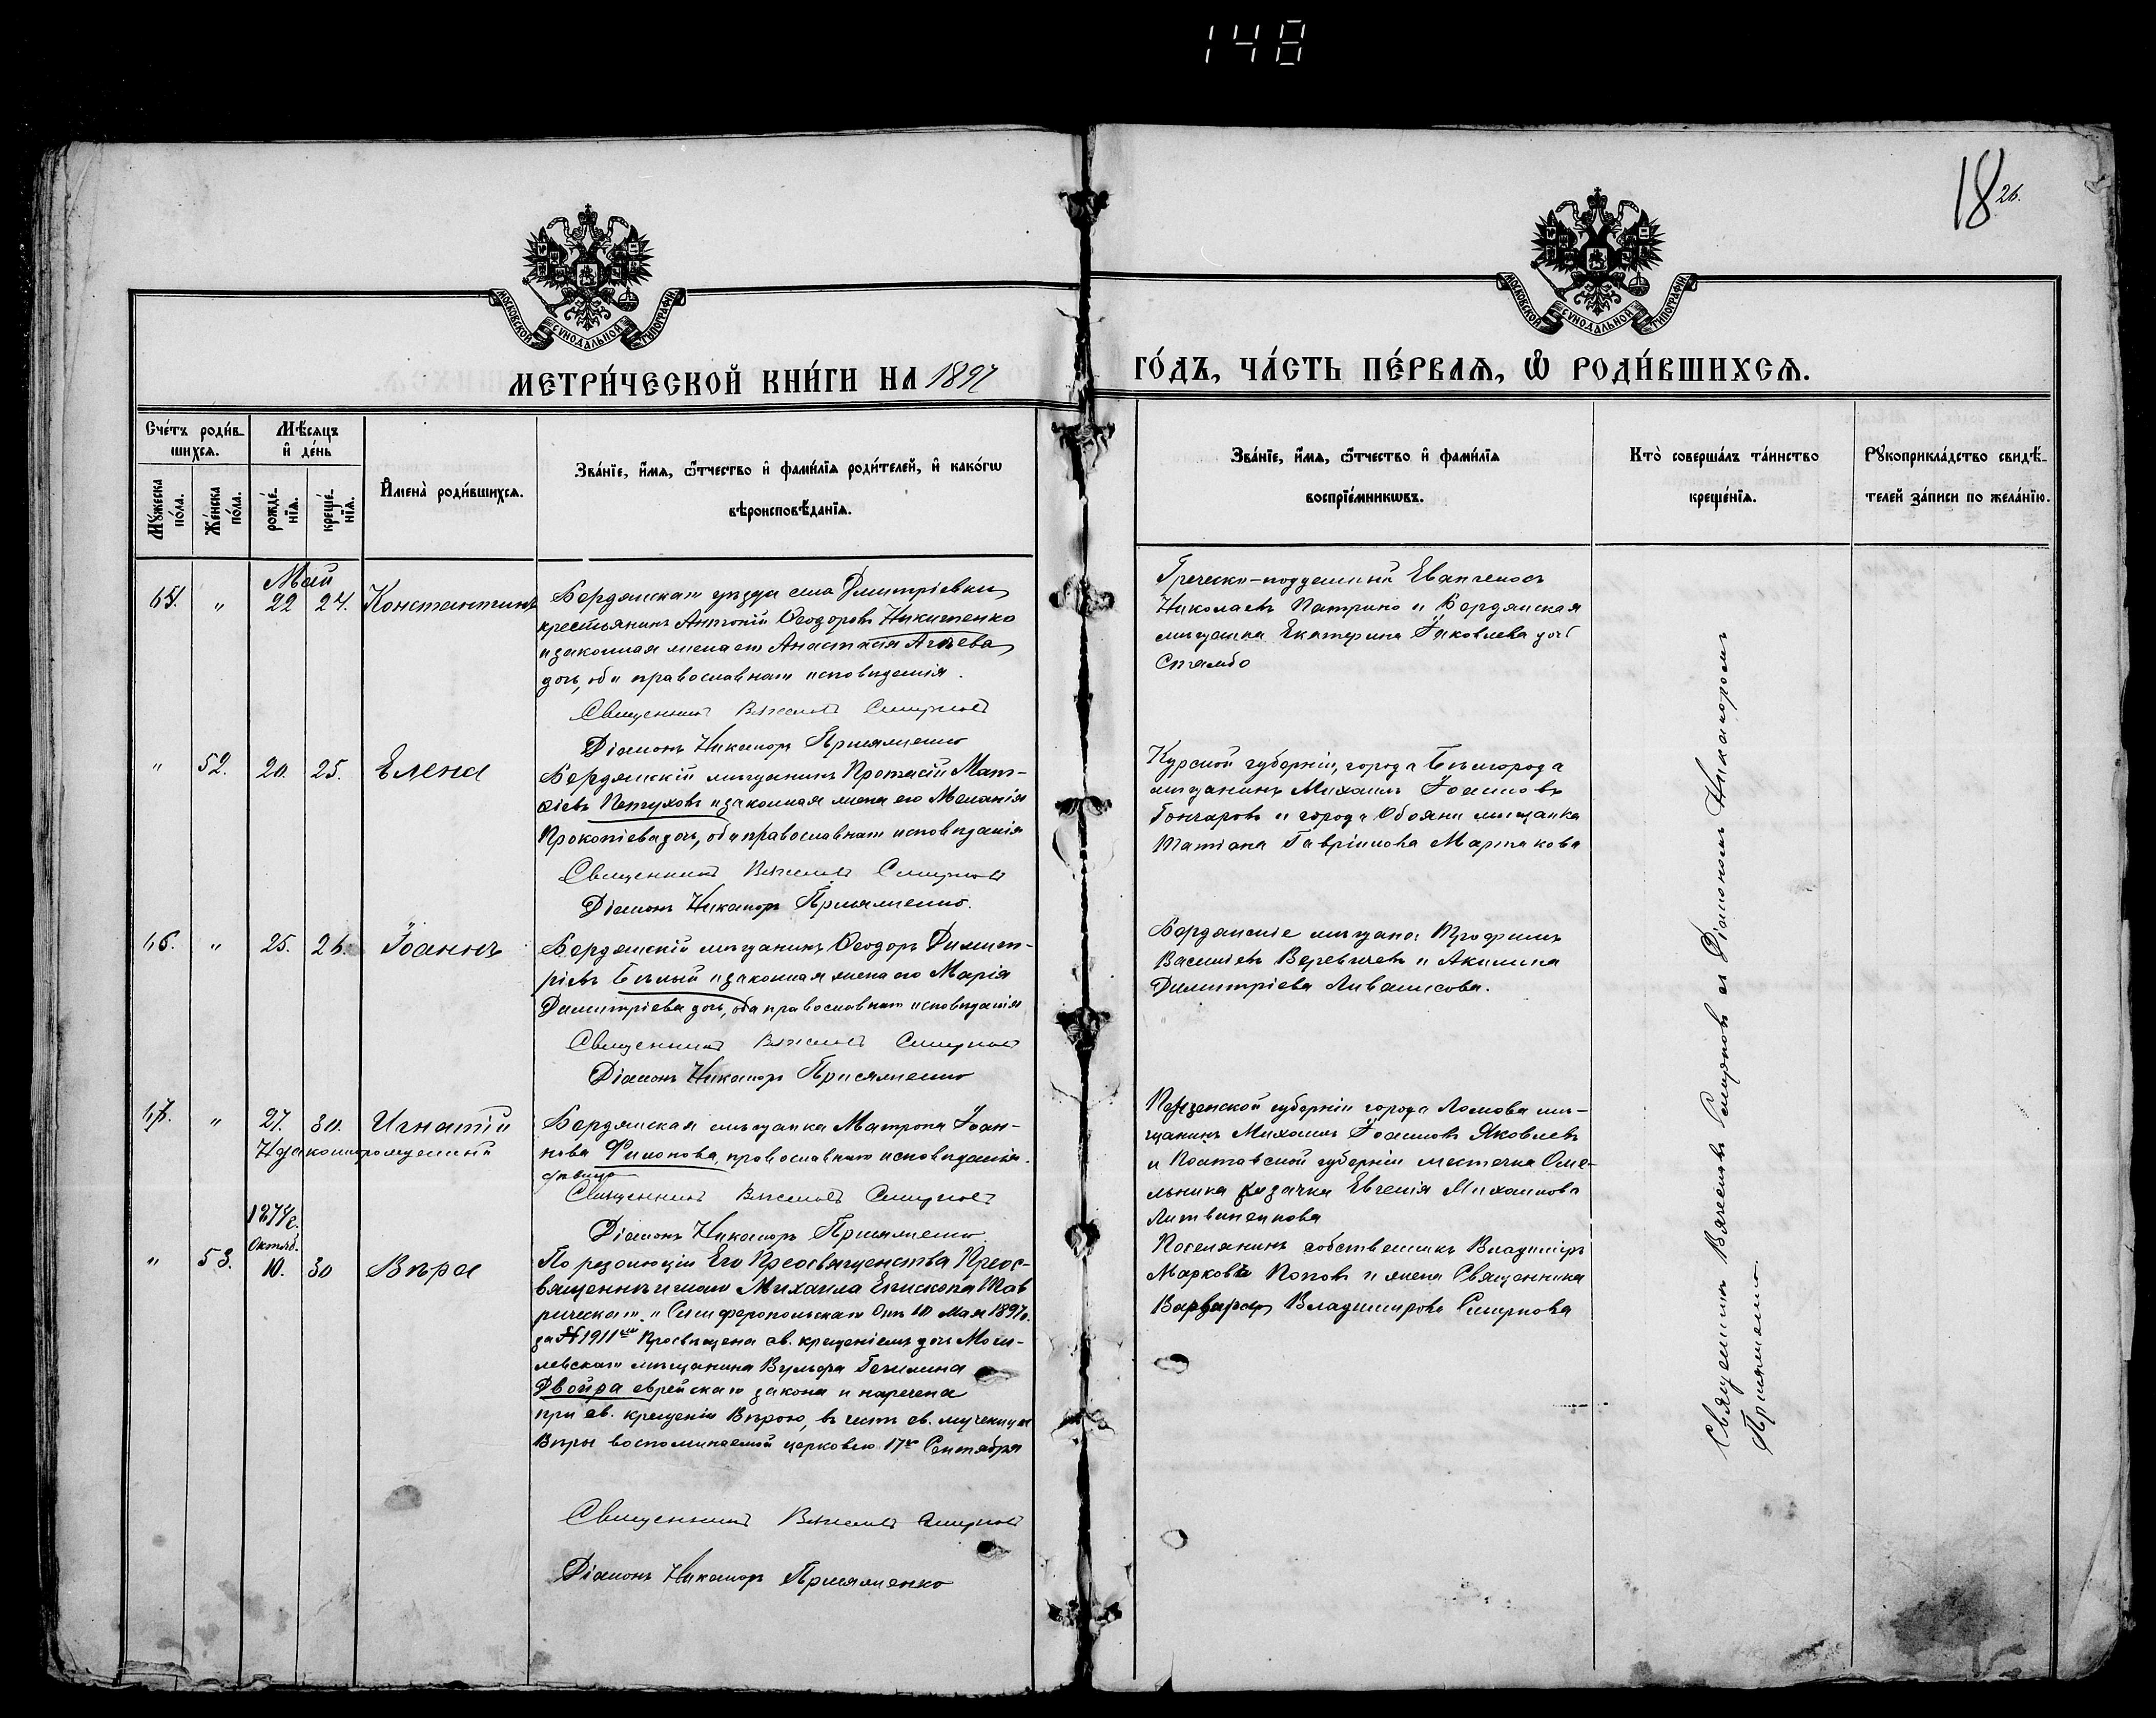 148
18 26.
МОСКОВСКОЙ СѴНОДАЛЬНОЙ ТИПОГРАФІИ.
МОСКОВСКОЙ СѴНОДАЛЬНОЙ ТИПОГРАФІИ.
МЕТРИ́ЧЕСКОЙ КНИ́ГИ НА 1897
ГО́ДЪ, ЧА́СТЬ ПЕ́РВАѦ, Ѡ҆ РОДИ́ВШИХСѦ.
Сче́тъ роди́в-
шихсѧ.
Мѣ́сѧцъ
и҆ де́нь
Мꙋ́жеска по́ла.
Же́нска по́ла.
рожде́-
нїѧ.
креще́-
нїѧ.
И҆мена̀ роди́вшихсѧ.
Зва́нїе, и҆́мѧ, ѻ҆́тчество и҆ фами́лїѧ роди́телей, и҆ како́гѡ
вѣроисповѣ́данїѧ.
Зва́нїе, и҆́мѧ, ѻ҆́тчество и҆ фами́лїѧ
воспрїе́мникѡвъ.
Кто̀ соверша́лъ та́инство
креще́нїѧ.
Рꙋкоприкла́дство свидѣ́-
телей за́писи по жела́нїю.
Май
65. " 22 24. Константинъ
Бердянскаго уѣзда села Дмитріевки
крестьянинъ Антоній Ѳеодоровъ Никитенко
и законная жена его Анастасія
дочь, оба православнаго исповѣданія.
Священникъ Вячеславъ Смирновъ
Діаконъ Никаноръ Присяженко
Греческо-подданный Евангелосъ
Николаевъ Патрино и Бердянская
мѣщанка Екатерина Іаковлева дочь
Стамбо
" 52. 20. 25. Елена
Бердянскій мѣщанинъ Протасій Мат-
ѳіевъ Петуховъ и законная жена его Меланія
Прокопіева дочь, оба православнаго исповѣданія
Священникъ Вячеславъ Смирновъ
Діаконъ Никаноръ Присяженко.
Курской губерніи, города Бѣлгорода
мѣщанинъ Михаилъ Іоанновъ
Гончаровъ и города Обояни мѣщанка
Татіана Гавріилова Мартакова
66. " 25. 26. Іоаннъ
Бердянскій мѣщанинъ Ѳеодоръ Димит-
ріевъ Бѣлый и законная жена его Марія
Димитріева дочь, оба православнаго исповѣданія
Священникъ Вячеславъ Смирновъ
Діаконъ Никаноръ Присяженко
Бердянскіе мѣщане: Трофимъ
Васильевъ Веревичевъ и Акилина
Димитріева
67. " 27. 30. Игнатій
Незаконнорожденный
Бердянская мѣщанка Матрона Іоан-
нова Филонова, православнаго исповѣданія.
дѣвица
Священникъ Вячеславъ Смирновъ
Діаконъ Никаноръ Присяженко
Пензенской губерніи города Ломова мѣ-
щанинъ Михаилъ Іоанновъ Яковлевъ
и Полтавской губерніи местечка Оме-
льника казачка Евгенія Михаилова
Литвиненкова
1874 г.
Октяб.
" 53. 10. 30 Вѣра
По резолюціи Его Преосвященства Преос-
вященнѣйшаго Михаила Епископа Тав
рическаго и Симферопольскаго отъ 10 Мая 1897 г.
за № 1911 Просвѣщена св. крещеніемъ дочь Моги-
левскаго мѣщанина Вульфа
Двойра еврейскаго закона и наречена
при св. крещеніи Вѣрою, въ честь св. мученицы
Вѣры воспоминаемой церковью 17го Сентября
Священникъ Вячеславъ Смирновъ
Діаконъ Никаноръ Присяженко
Поселянинъ собственникъ Владиміръ
Марковъ Поповъ и жена Священника
Варвара Владимирова Смирнова
Священникъ Вячеславъ Смирновъ съ Діакономъ Никаноромъ
Присяженко.